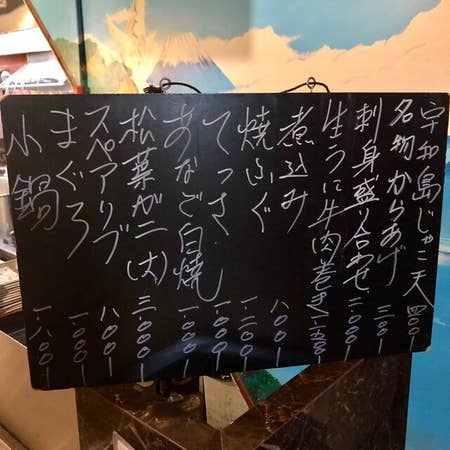 宇和島じゃこ天 四〇〇ー
名物からあげ 三〇〇ー
刺身盛り合わせ 二.〇〇〇ー
生うに牛肉巻き 一.五〇〇ー
煮込み 八〇〇ー
焼ふぐ 一.二〇〇ー
てっさ 一.〇〇〇ー
あなご白焼 一.〇〇〇ー
松葉がニ(大) 二.〇〇〇ー
スペアリブ 八〇〇ー
まぐろ 一.〇〇〇ー
小鍋 一.八〇〇ー